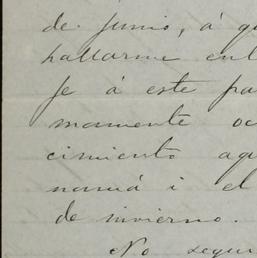 de Junio, á qu
hallarme ent
je á este pa
mamente oc
cimiento aqu
namá i el
de invierno.
No segu